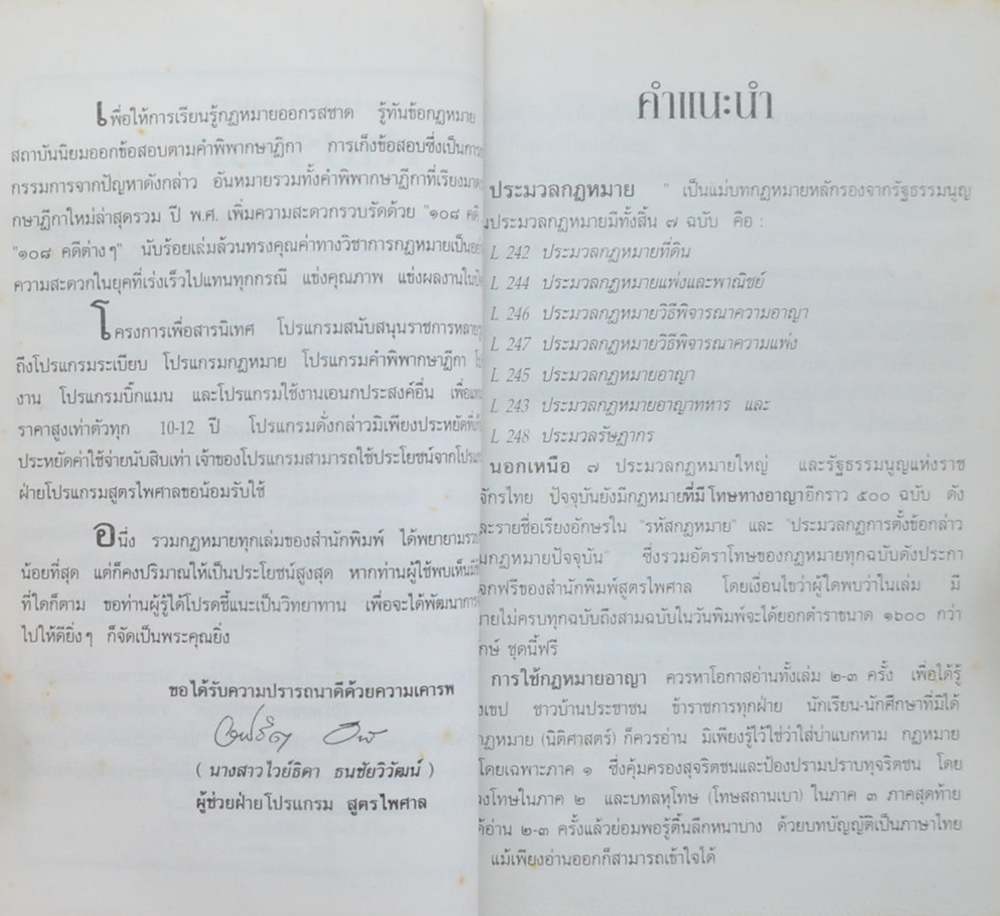 เพื่อให้การเรียนรู้กฎหมายออกรสชาด รู้ทันข้อกฎหมาย
สถาบันนิยมออกข้อสอบตามคำพิพากษาฎีกา การเก็งข้อสอบซึ่งเป็นการ
กรรมการจากปัญหาดังกล่าว อันหมายรวมทั้งคำพิพากษาฎีกาที่เรียงมาตรา
กษาฎีกาใหม่ล่าสุดรวม ปี พ.ศ. เพิ่มความสะดวกรวบรัดด้วย "๑๐๘ คดี
"๑๐๘ คดีต่างๆ" นับร้อยเล่มล้วนทรงคุณค่าทางวิชาการกฎหมายเป็นอย่
ความสะดวกในยุคที่เร่งเร็วไปแทบทุกกรณี แข่งคุณภาพ แข่งผลงานใน
โครงการเพื่อสารนิเทศ โปรแกรมสนับสนุนราชการหลาย
ถึงโปรแกรมระเบียบ โปรแกรมกฎหมาย โปรแกรมคำพิพากษาฎีกา
งาน โปรแกรมบิ๊กแมน และโปรแกรมใช้งานเอนกประสงค์อื่น เพื่อ
ราคาสูงเท่าตัวทุก 10-12 ปี โปรแกรมดังกล่าวมิเพียงประหยัด
ประหยัดค่าใช้จ่ายนับสิบเท่า เจ้าของโปรแกรมสามารถใช้ประโยชน์จากโปรแ
ฝ่ายโปรแกรมสูตรไพศาลขอน้อมรับใช้
อนึ่ง รวมกฎหมายทุกเล่มของสำนักพิมพ์ ได้พยายาม
น้อยที่สุด แต่ก็คงปริมาณให้เป็นประโยชน์สูงสุด หากท่านผู้ใช้พบเห็น
ที่ใดก็ตาม ขอท่านผู้รู้ได้โปรดชี้แนะเป็นวิทยาทาน เพื่อจะได้พัฒนาการ
ไปให้ดียิ่งๆ ก็จัดเป็นพระคุณยิ่ง
ขอได้รับความปรารถนาดีด้วยความเคารพ
( นางสาวไวย์ธิดา ธนชัยวิวัฒน์ )
ผู้ช่วยฝ่ายโปรแกรม สูตรไพศาล
คำแนะนำ
ประมวลกฎหมาย " เป็นแม่บทกฎหมายหลักรองจากรัฐธรรมนูญ
ประมวลกฎหมายมีทั้งสิ้น ๗ ฉบับ คือ :
L 242 ประมวลกฎหมายที่ดิน
L 244 ประมวลกฎหมายแพ่งและพาณิชย์
L 246 ประมวลกฎหมายวิธีพิจารณาความอาญา
L 247 ประมวลกฎหมายวิธีพิจารณาความแพ่ง
L 245 ประมวลกฎหมายอาญา
L 243 ประมวลกฎหมายอาญาทหาร และ
L 248 ประมวลรัษฎากร
นอกเหนือ ๗ ประมวลกฎหมายใหญ่ และรัฐธรรมนูญแห่งราช
จักรไทย ปัจจุบันยังมีกฎหมายที่มีโทษทางอาญาอีกราว ๕๐๐ ฉบับ ดัง
ละรายชื่อเรียงอักษรใน "รหัสกฎหมาย" และ "ประมวลกฎการตั้งข้อกล่าว
มกฎหมายปัจจุบัน" ซึ่งรวมอัตราโทษของกฎหมายทุกฉบับดังประกา
จกฟรีของสำนักพิมพ์สูตรไพศาล โดยเงื่อนไขว่าผู้ใดพบว่าในเล่ม มี
ายไม่ครบทุกฉบับถึงสามฉบับในวันพิมพ์จะได้ยอกตำราขนาด ๑๖๐๐ กว่า
กษ์ ชุดนี้ฟรี
การใช้กฎหมายอาญา ควรหาโอกาสอ่านทั้งเล่ม ๒-๓ ครั้ง เพื่อได้รู้
งเขป ชาวบ้านประชาชน ข้าราชการทุกฝ่าย นักเรียน-นักศึกษาที่มิได้
กฎหมาย (นิติศาสตร์) ก็ควรอ่าน มิเพียงรู้ไว้ใช่ว่าใส่บ่าแบกหาม กฎหมาย
โดยเฉพาะภาค ๑ ซึ่งคุ้มครองสุจริตชนและป้องปรามปราบทุจริตชน โดย
งโทษในภาค ๒ และบทลหุโทษ (โทษสถานเบา) ในภาค ๓ ภาคสุดท้าย
ด้อ่าน ๒-๓ ครั้งแล้วย่อมพอรู้ตื้นลึกหนาบาง ด้วยบทบัญญัติเป็นภาษาไทย
แม้เพียงอ่านออกก็สามารถเข้าใจได้